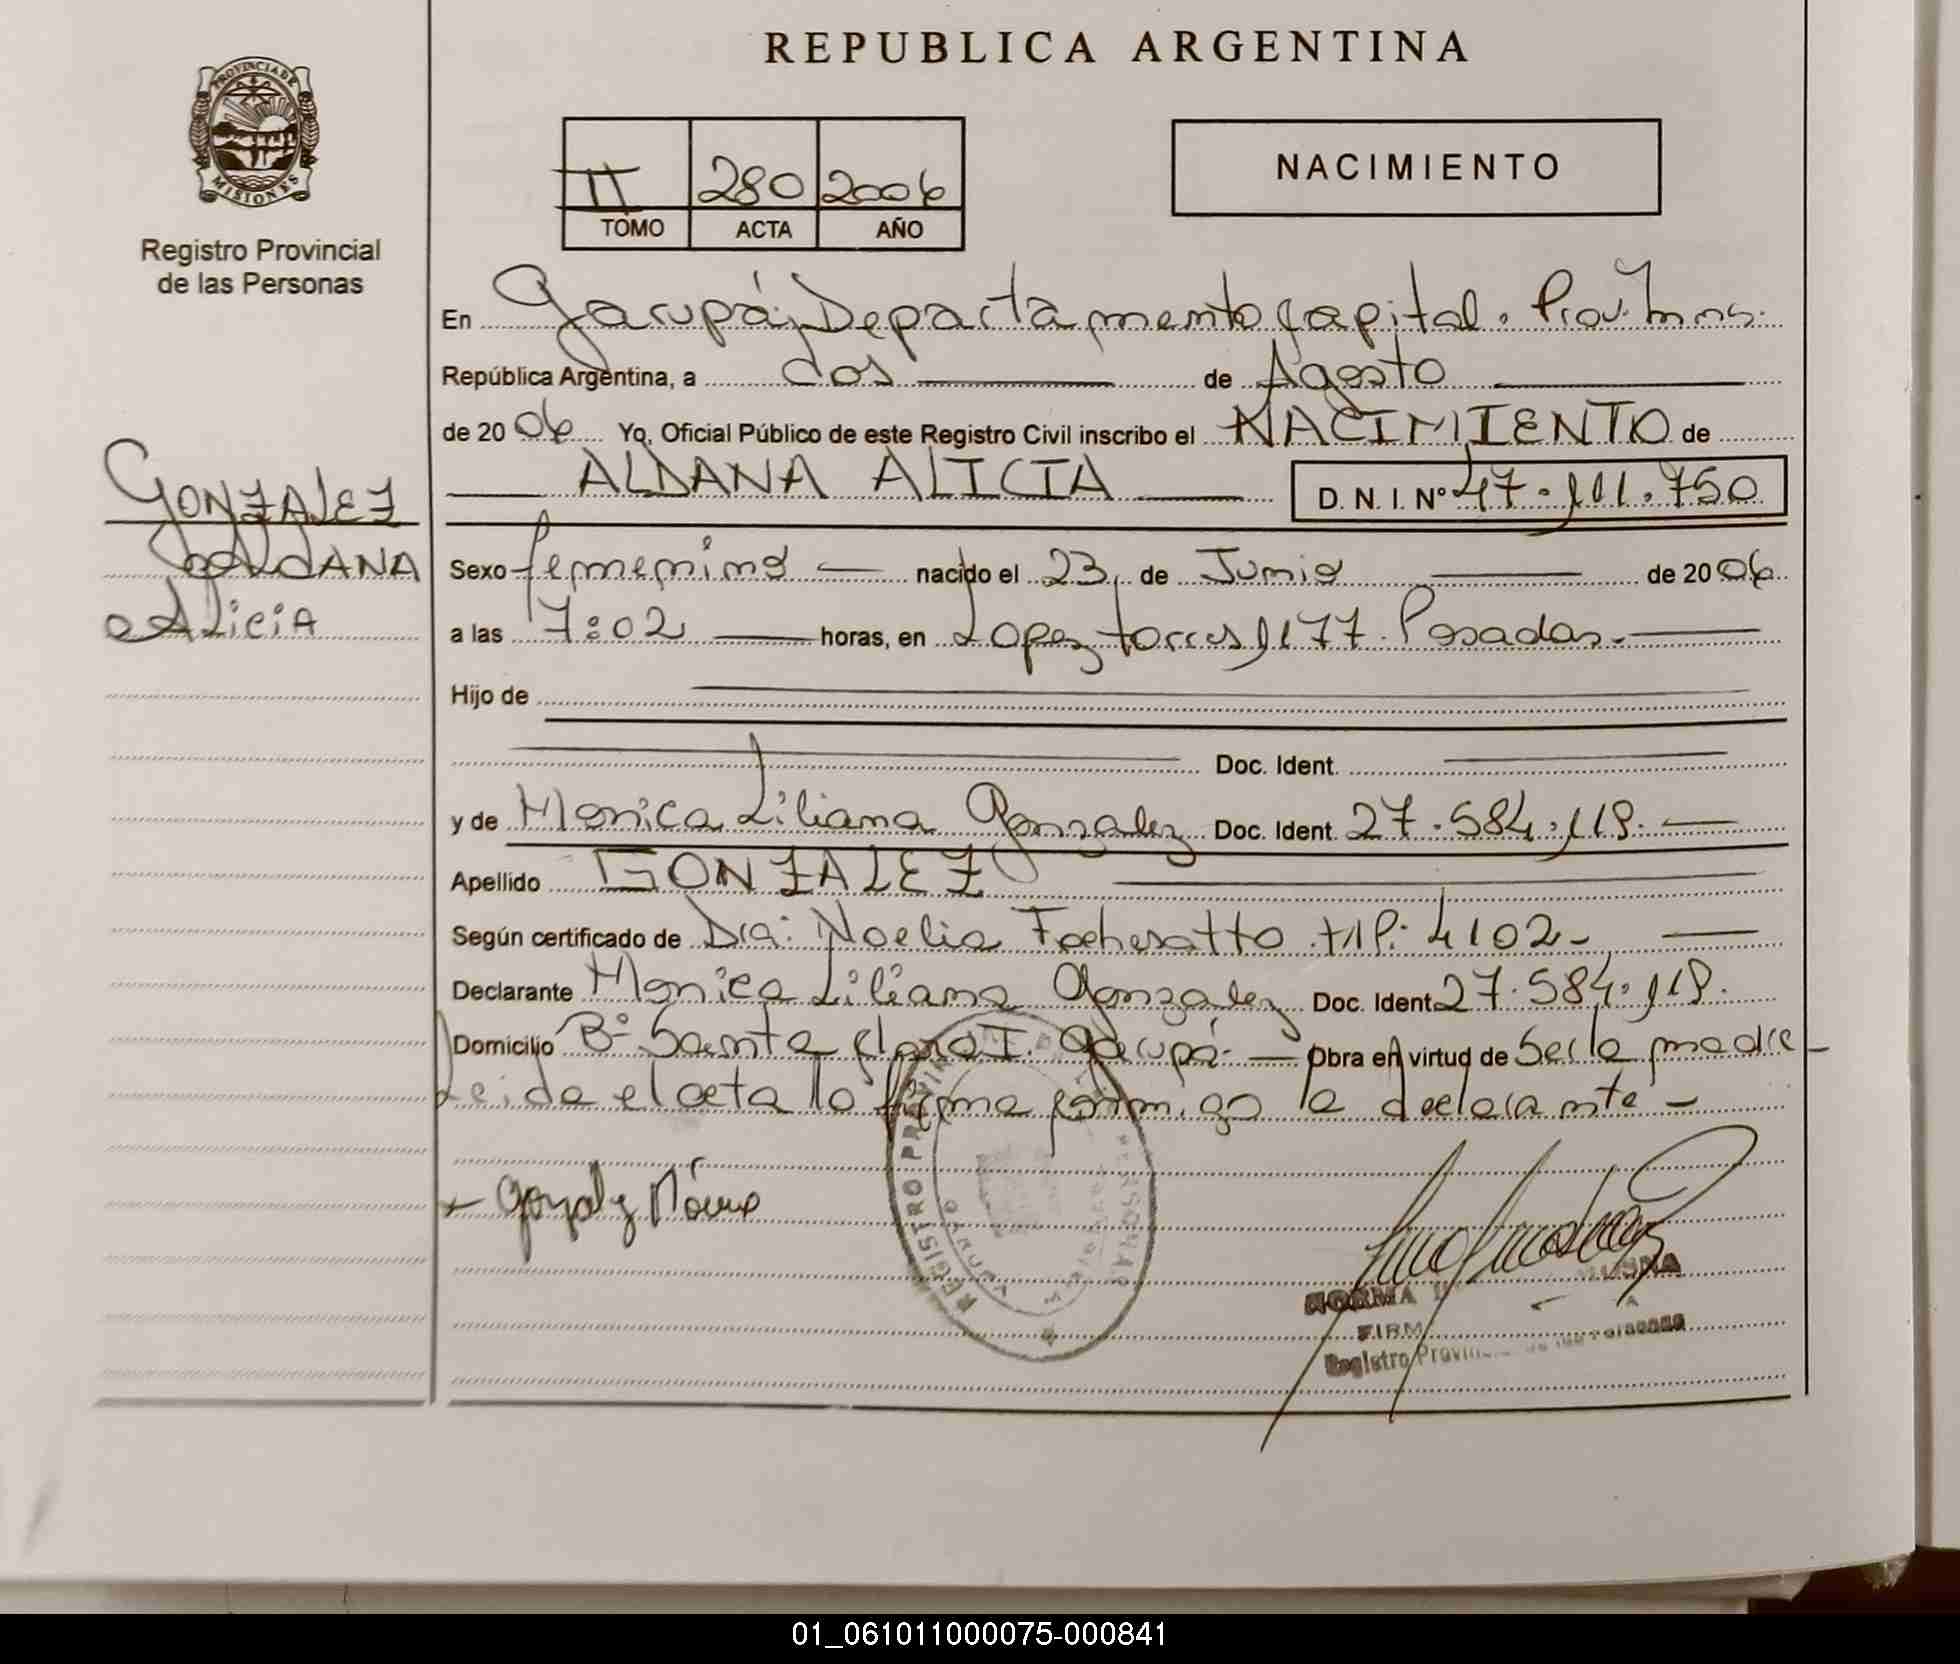 REPUBLICA ARGENTINA
PROVINCIA DE
MISIONES
Registro Provincial
de las Personas
II 280 2006
TOMO ACTA AÑO
NACIMIENTO
En Garupá, Departamento Capital. Prov. Mnes.
República Argentina, a dos de Agosto
de 2006 Yo, Oficial Público de este Registro Civil inscribo el NACIMIENTO de
ALDANA ALICIA D. N. I. Nº 47.111.750
GONZALEZ
ALDANA
Alicia
Sexo femenino nacido el 23 de Junio de 2006
a las 7:02 horas, en Lopez torres 1177. Posadas.
Hijo de
Doc. Ident.
y de Monica Liliana Gonzalez Doc. Ident. 27.584.119.
Apellido GONZALEZ
Según certificado de Dra: Noelia M.P.: 4102-
Declarante Monica Liliana Gonzalez Doc. Ident 27.584.119.
Domicilio Bº Santa Clara I. Garupá. Obra en virtud de Ser la madre
Leida el acta la firma conmigo la declarante -
Gonzalez Mónica
REGISTRO PROVIN PERSONAS
NORMA
FIRM
Registro Provin
01_061011000075-000841